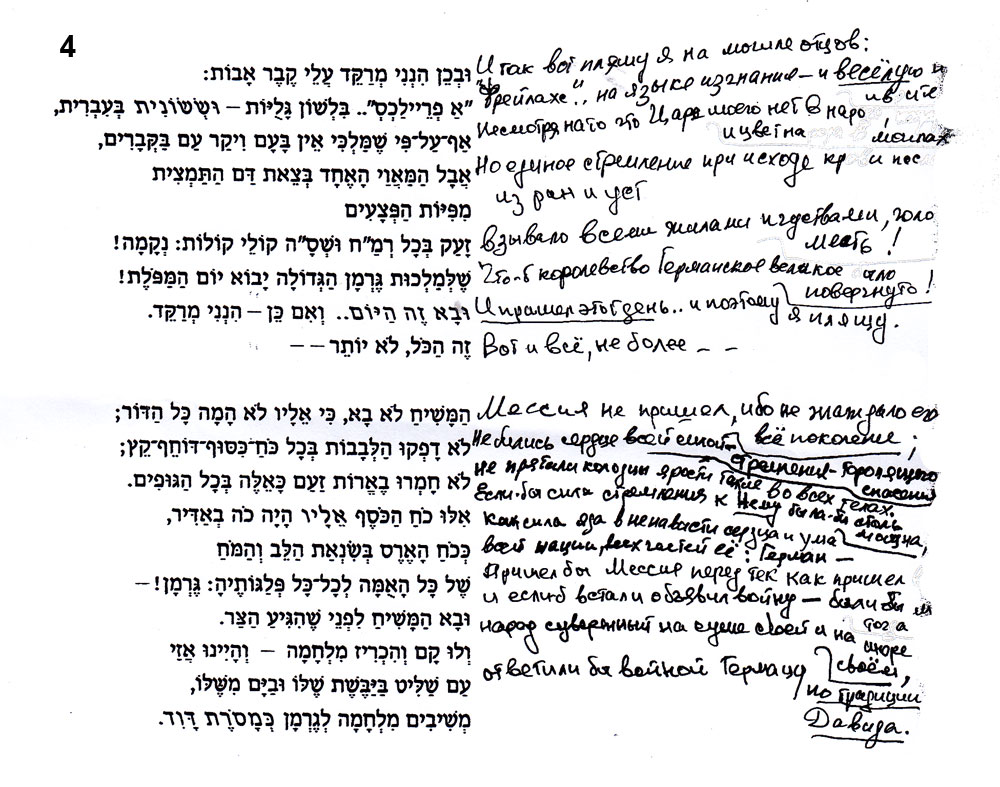 4
וּבְכֵן הִנְנִי מְרַקֵּד עֲלֵי קֶבֶר אָבוֹת:
И так вот пляшу я на могиле отцов:
"אַ פְרֵיילַכְס".. בִּלְשׁוֹן גָּלֻיּוֹת – וְשְׂשׂוֹנִית בְּעִבְרִית,
"Фрейлахс".. на языке изгнания – и весёлую
אַף-עַל-פִּי שֶׁמַּלְכִּי אֵין בָּעָם וִיקַר עַם בַּקְּבָרִים,
Несмотря на то что Царя моего нет в наро
и цвет на
могилах
אֲבָל הַמַּאֲוַי הָאֶחָד בְּצֵאת דַּם הַתַּמְצִית
Но единое стремление при исходе кр
מִפִּיּוֹת הַפְּצָעִים
из ран и уст
זָעַק בְּכָל רְמַ"ח וּשְׁסָ"ה קוֹלֵי קוֹלוֹת: נְקָמָה!
взывало всеми жилами и чувствами,
месть!
שֶׁלְּמַלְכוּת גֶּרְמָן הַגְּדוֹלָה יָבוֹא יוֹם הַמַּפֹּלֶת!
Что-б королевство Германское великое
повергнуто!
וּבָא זֶה הַיּוֹם.. וְאִם כֵּן – הִנְנִי מְרַקֵּד.
И пришел этот день.. и поэтому я пляшу.
זֶה הַכֹּל, לֹא יוֹתֵר – –
Вот и всё, не более – –
הַמָּשִׁיחַ לֹא בָא, כִּי אֵלָיו לֹא הָמָה כָּל הַדּוֹר;
Мессия не пришел, ибо не жаждало его
всё поколение;
לֹא דָפְקוּ הַלְּבָבוֹת בְּכָל כֹּחַ-כִּסּוּף-דּוֹחֵף-קֵץ;
Не бились сердца всей силой
стремления - торопящего
спасения
לֹא חָמְרוּ בְאֵרוֹת זַעַם כָּאֵלֶּה בְּכָל הַגּוּפִים.
не прятали колодцы ярости такие во всех телах.
אִלּוּ כֹחַ הַכֹּסֶף אֵלָיו הָיָה כֹה בְאַדִּיר,
Если-бы сила стремления к Нему была-бы столь
мощна,
כְּכֹחַ הָאֶרֶס בְּשִׂנְאַת הַלֵּב וְהַמֹּחַ
как сила яда в ненависти сердца и ума
שֶׁל כָּל הָאֻמָּה לְכָל-כָּל פְּלַגּוֹתֶיהָ: גֶּרְמָן! –
всей нации, всех частей её: Герман –
וּבָא הַמָּשִׁיחַ לִפְנֵי שֶׁהִגִּיעַ הַצַּר.
Пришел бы Мессия перед тек как пришел
וְלוּ קָם וְהִכְרִיז מִלְחָמָה – וְהָיִינוּ אֲזַי
и если б встали объявил войну – были бы
עַם שַׁלִּיט בַּיַּבֶּשֶׁת שֶׁלּוֹ וּבַיָּם מִשֶּׁלּוֹ,
народ суверенный на суше своей и на
море
своём,
מְשִׁיבִים מִלְחָמָה לְגֶרְמָן כְּמָסֹרֶת דָּוִד.
ответили бы войной Герману
по традиции
Давида.